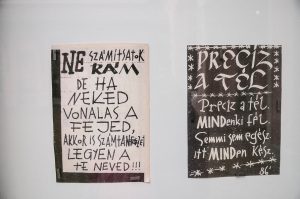 NE SZÁMÍTSATOK
RÁM
DE HA
NEKED
VONALAS A
FEJED,
AKKOR IS SZÁMTANFÜZET
LEGYEN A
TE NEVED!!!
PRECÍZ
A TÉL
Precíz a tél.
MINDenki fél.
Semmi sem egész.
itt MINDen kész.
86'